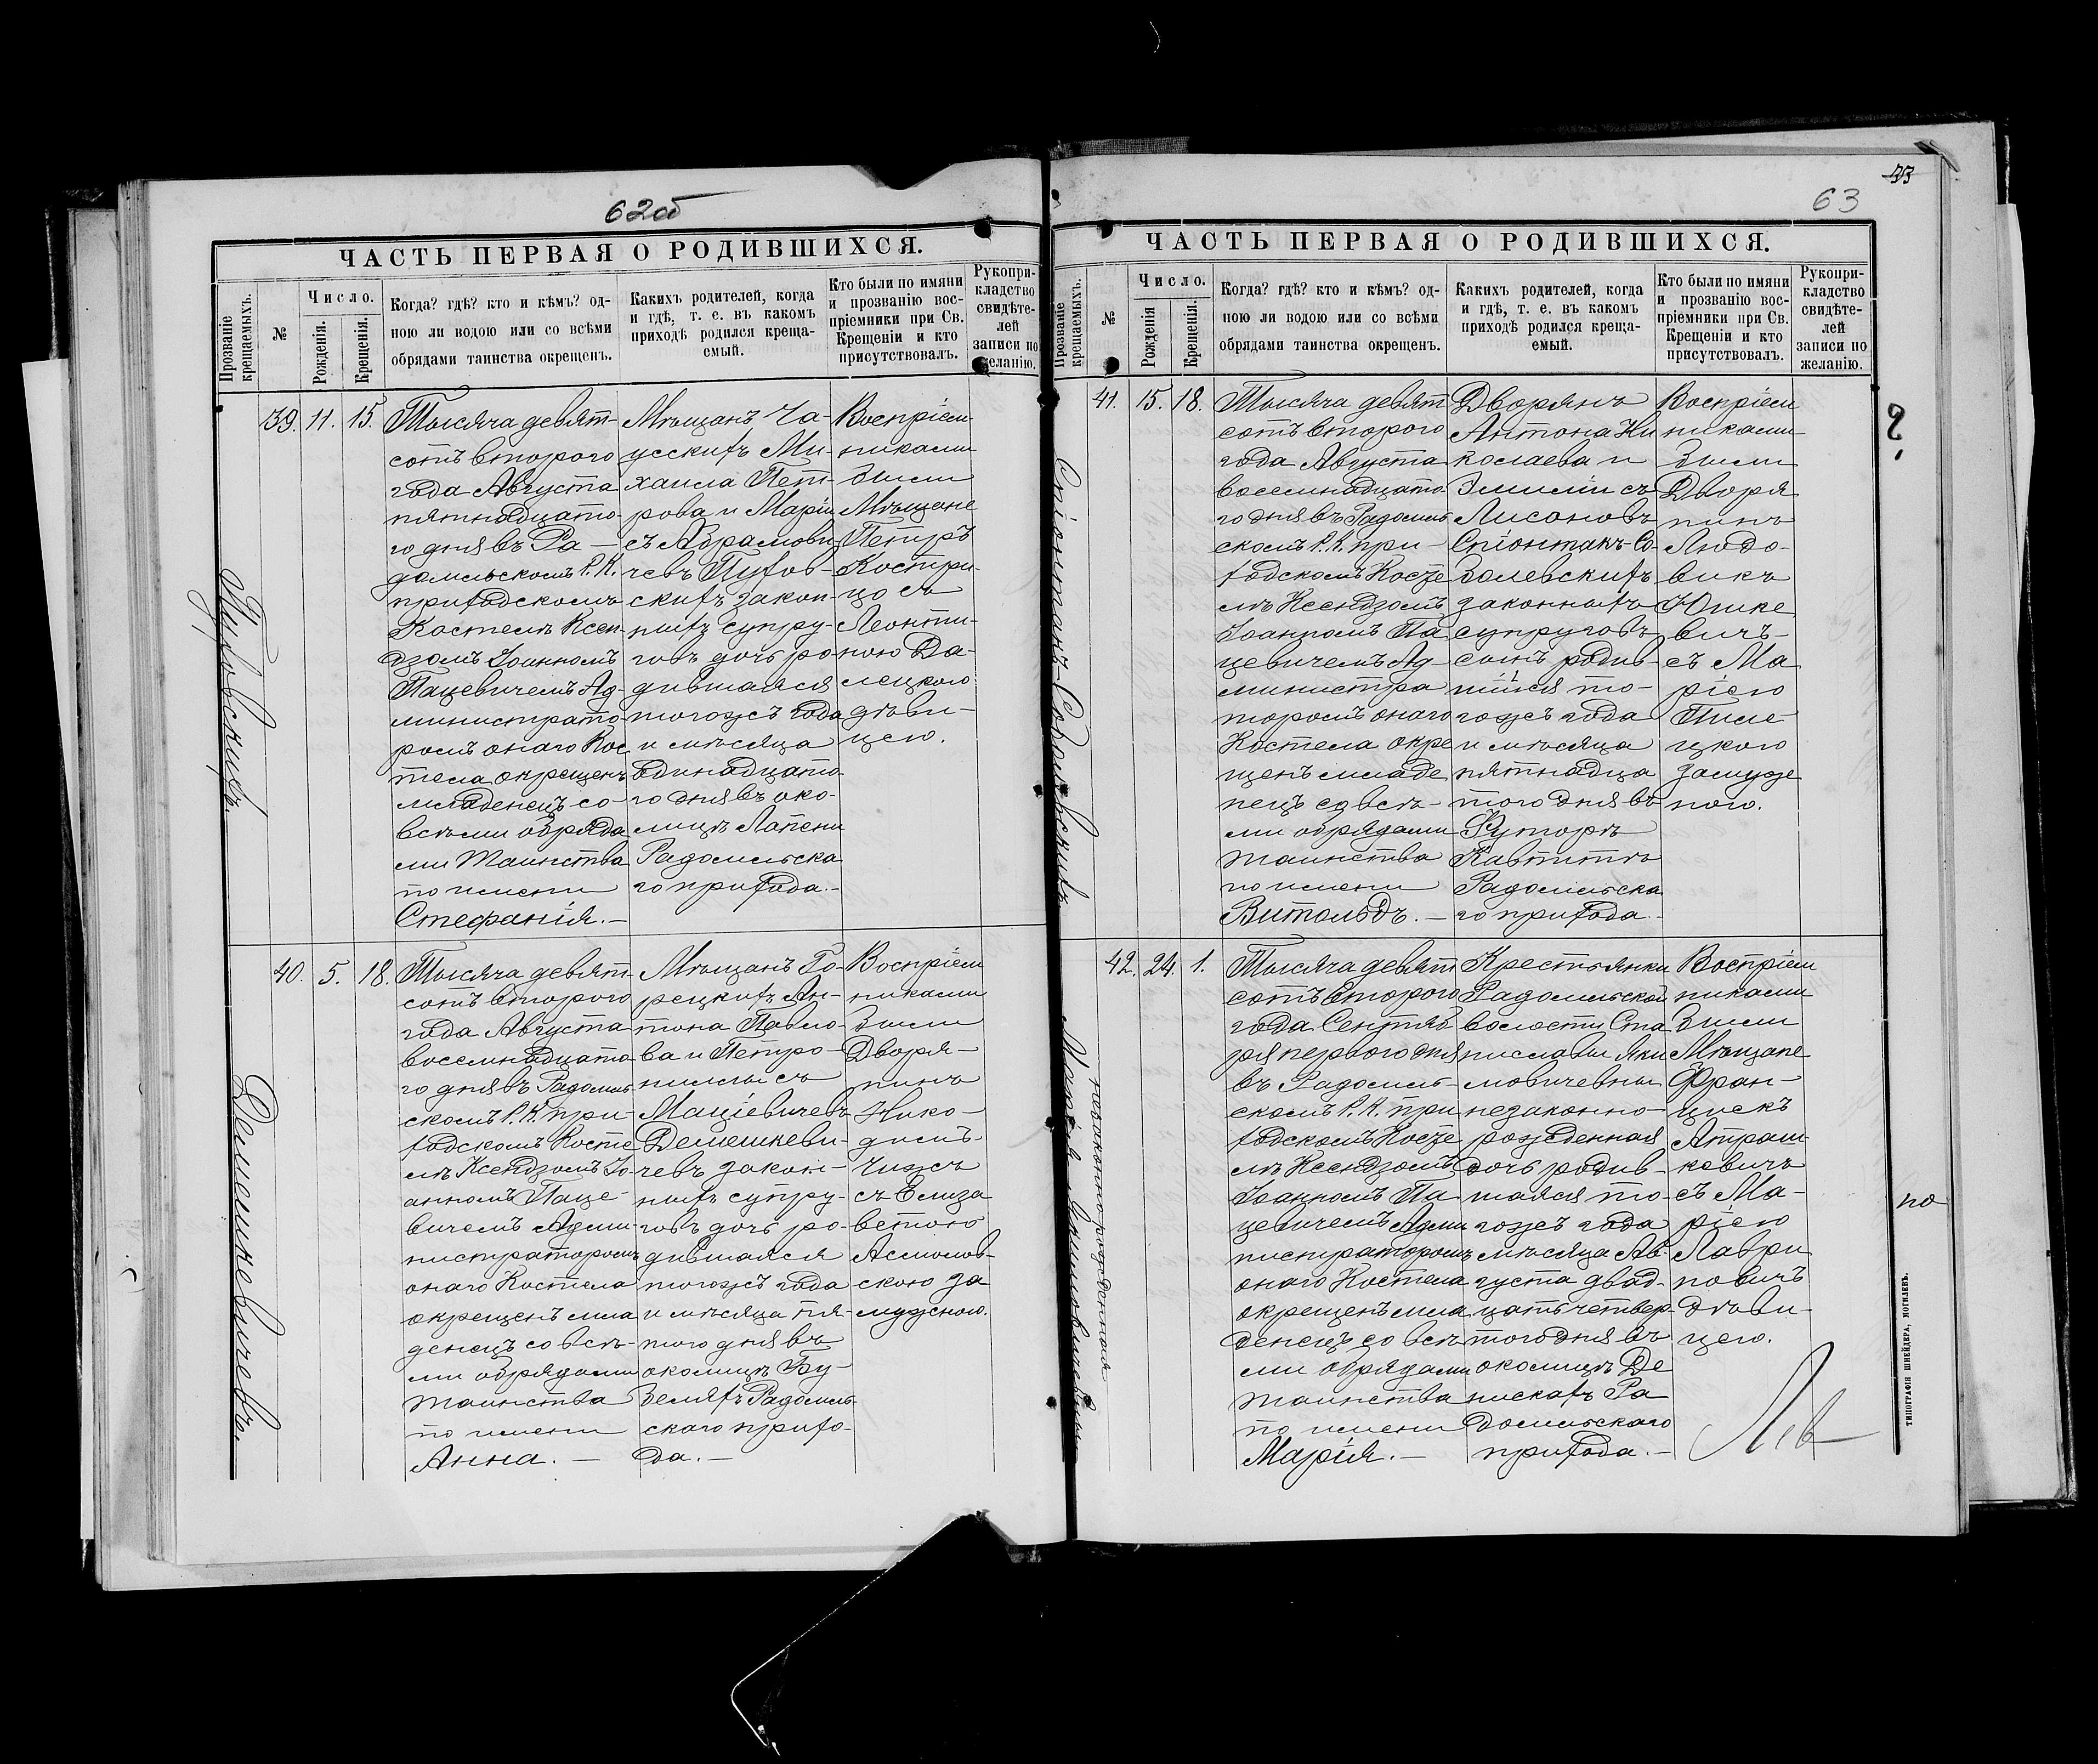 62об
ЧАСТЬ ПЕРВАЯ О РОДИВШИХСЯ.
Прозваніе крещаемыхъ.
№
Число.
Рожденія.
Крещенія.
Когда? гдѣ? кто и кѣмъ? од-
ною ли водою или со всѣми
обрядами таинства окрещенъ.
Какихъ родителей, когда
и гдѣ, т. е. въ какомъ
приходѣ родился креща-
емый.
Кто были по имяни
и прозванію вос-
пріемники при Св.
Крещеніи и кто
присутствовалъ.
Рукопри-
кладство
свидѣте-
лей
записи по
желанію.
39. 11. 15.
Тысяча девят-
сотъ второго
года Августа
пятнадцато-
го дня въ Ра-
домльскомъ Р. К.
приходскомъ
Костелѣ Ксен-
дзомъ Іоанномъ
Пацевичемъ Ад-
министрато-
ромъ онаго Кос
тела окрещенъ
младенецъ со
всѣми обряда
ми Таинства
по имени
Стефанія.-
Мѣщанъ Ча-
усскихъ Ми-
хаила Пет-
рова и Маріи
съ Абрамови-
чевъ Пухов-
скихъ закон-
ныхъ супру-
говъ дочь ро
дившаяся
тогожъ года
и мѣсяца
одинадцато
го дня въ око-
лицѣ Лапени
Радомльска
го прихода.-
Воспріем
никами
были
Мѣщане
Петръ
Костри-
цо съ
Леонти-
ною Да-
лецкою
дѣви-
цею.
Пуховскихъ.
40. 5. 18.
Тысяча девят-
сотъ второго
года Августа
восемнадцато
го дня въ Радомль
скомъ Р. К. при-
ходскомъ Косте
лѣ Ксендзомъ Іо-
анномъ Паце-
вичемъ Адми-
нистраторомъ
онаго Костела
окрещенъ мла
денецъ со всѣ-
ми обрядами
таинства
по имени
Анна.-
Мѣщанъ Го-
рецкихъ Ан-
тона Павло-
ва и Петро-
нили съ
Маціевичевъ
Демешкеви-
чевъ закон-
ныхъ супру-
говъ дочь ро-
дившаяся
тогожъ года
и мѣсяца пя-
того дня въ
околицѣ Бу-
Радомль-
скаго прихо-
да.-
Воспріем
никами
были
Дворя-
нинъ
Нико-
димъ
Чижъ
съ Елиза
ветою
скою за
мужною.
Демешкевичевъ.
33
63
ЧАСТЬ ПЕРВАЯ О РОДИВШИХСЯ.
Прозваніе крещаемыхъ.
№
Число.
Рожденія
Крещенія.
Когда? гдѣ? кто и кѣмъ? од-
ною ли водою или со всѣми
обрядами таинства окрещенъ.
Какихъ родителей, когда
и гдѣ, т. е. въ какомъ
приходѣ родился креща-
емый.
Кто были по имяни
и прозванію вос-
пріемники при Св.
Крещеніи и кто
присутствовалъ.
Рукопри-
кладство
свидѣте-
лей
записи по
желанію.
41. 15. 18.
Тысяча девят
сотъ второго
года Августа
восемнадцато
го дня въ Радомль
скомъ Р. К. при-
ходскомъ Косте
лѣ Ксендзомъ
Іоанномъ Па
цевичемъ Ад-
министра
торомъ онаго
Костела окре
щенъ младе
нецъ со всѣ-
ми обрядами
таинства
по имени
Витольдъ.-
Дворянъ
Антона Ни
колаева и
Эмиліи съ
Лисоновъ
Спіонтакъ-Со-
болевскихъ
законныхъ
супруговъ
сынъ родив-
шійся то-
гожъ года
и мѣсяца
пятнадца
того дня въ
Футорѣ
Радомльска
го прихода.-
Воспріем
никами
были
Дворя
нинъ
Людо-
викъ
Юшке
вичъ-
съ Ма
ріею
замуже
ною.
?
Спіонтакъ-Соболевскихъ.
42. 24. 1.
Тысяча девят
сотъ второго
года Сентяб
ря перваго дня
въ Радомль-
скомъ Р. К. при
ходскомъ Косте
лѣ Ксендзомъ
Іоанномъ Па
цевичемъ Адми
нистраторомъ
онаго Костела
окрещенъ мла
денецъ со всѣ
ми обрядами
таинства
по имени
Марія.-
Крестьянки
Радомльской
волости Ста
ниславы Яки
мовичевны
незаконно-
рожденная
дочь родив-
шаяся то-
гожъ года
мѣсяца Ав-
густа двад-
цать четвер
того дня въ
околицѣ Де
нискахъ Ра
домльскаго
прихода.-
Воспріем
никами
были
Мѣщане
Фран-
цискъ
Атраш-
кевичъ
съ Ма-
ріею
Лаври
новичъ
дѣви-
цею.
Марія Якимовичевны
незаконно рожденная
по
ТИПОГРАФІЯ ШНЕЙДЕРА, МОГИЛЕВЪ.